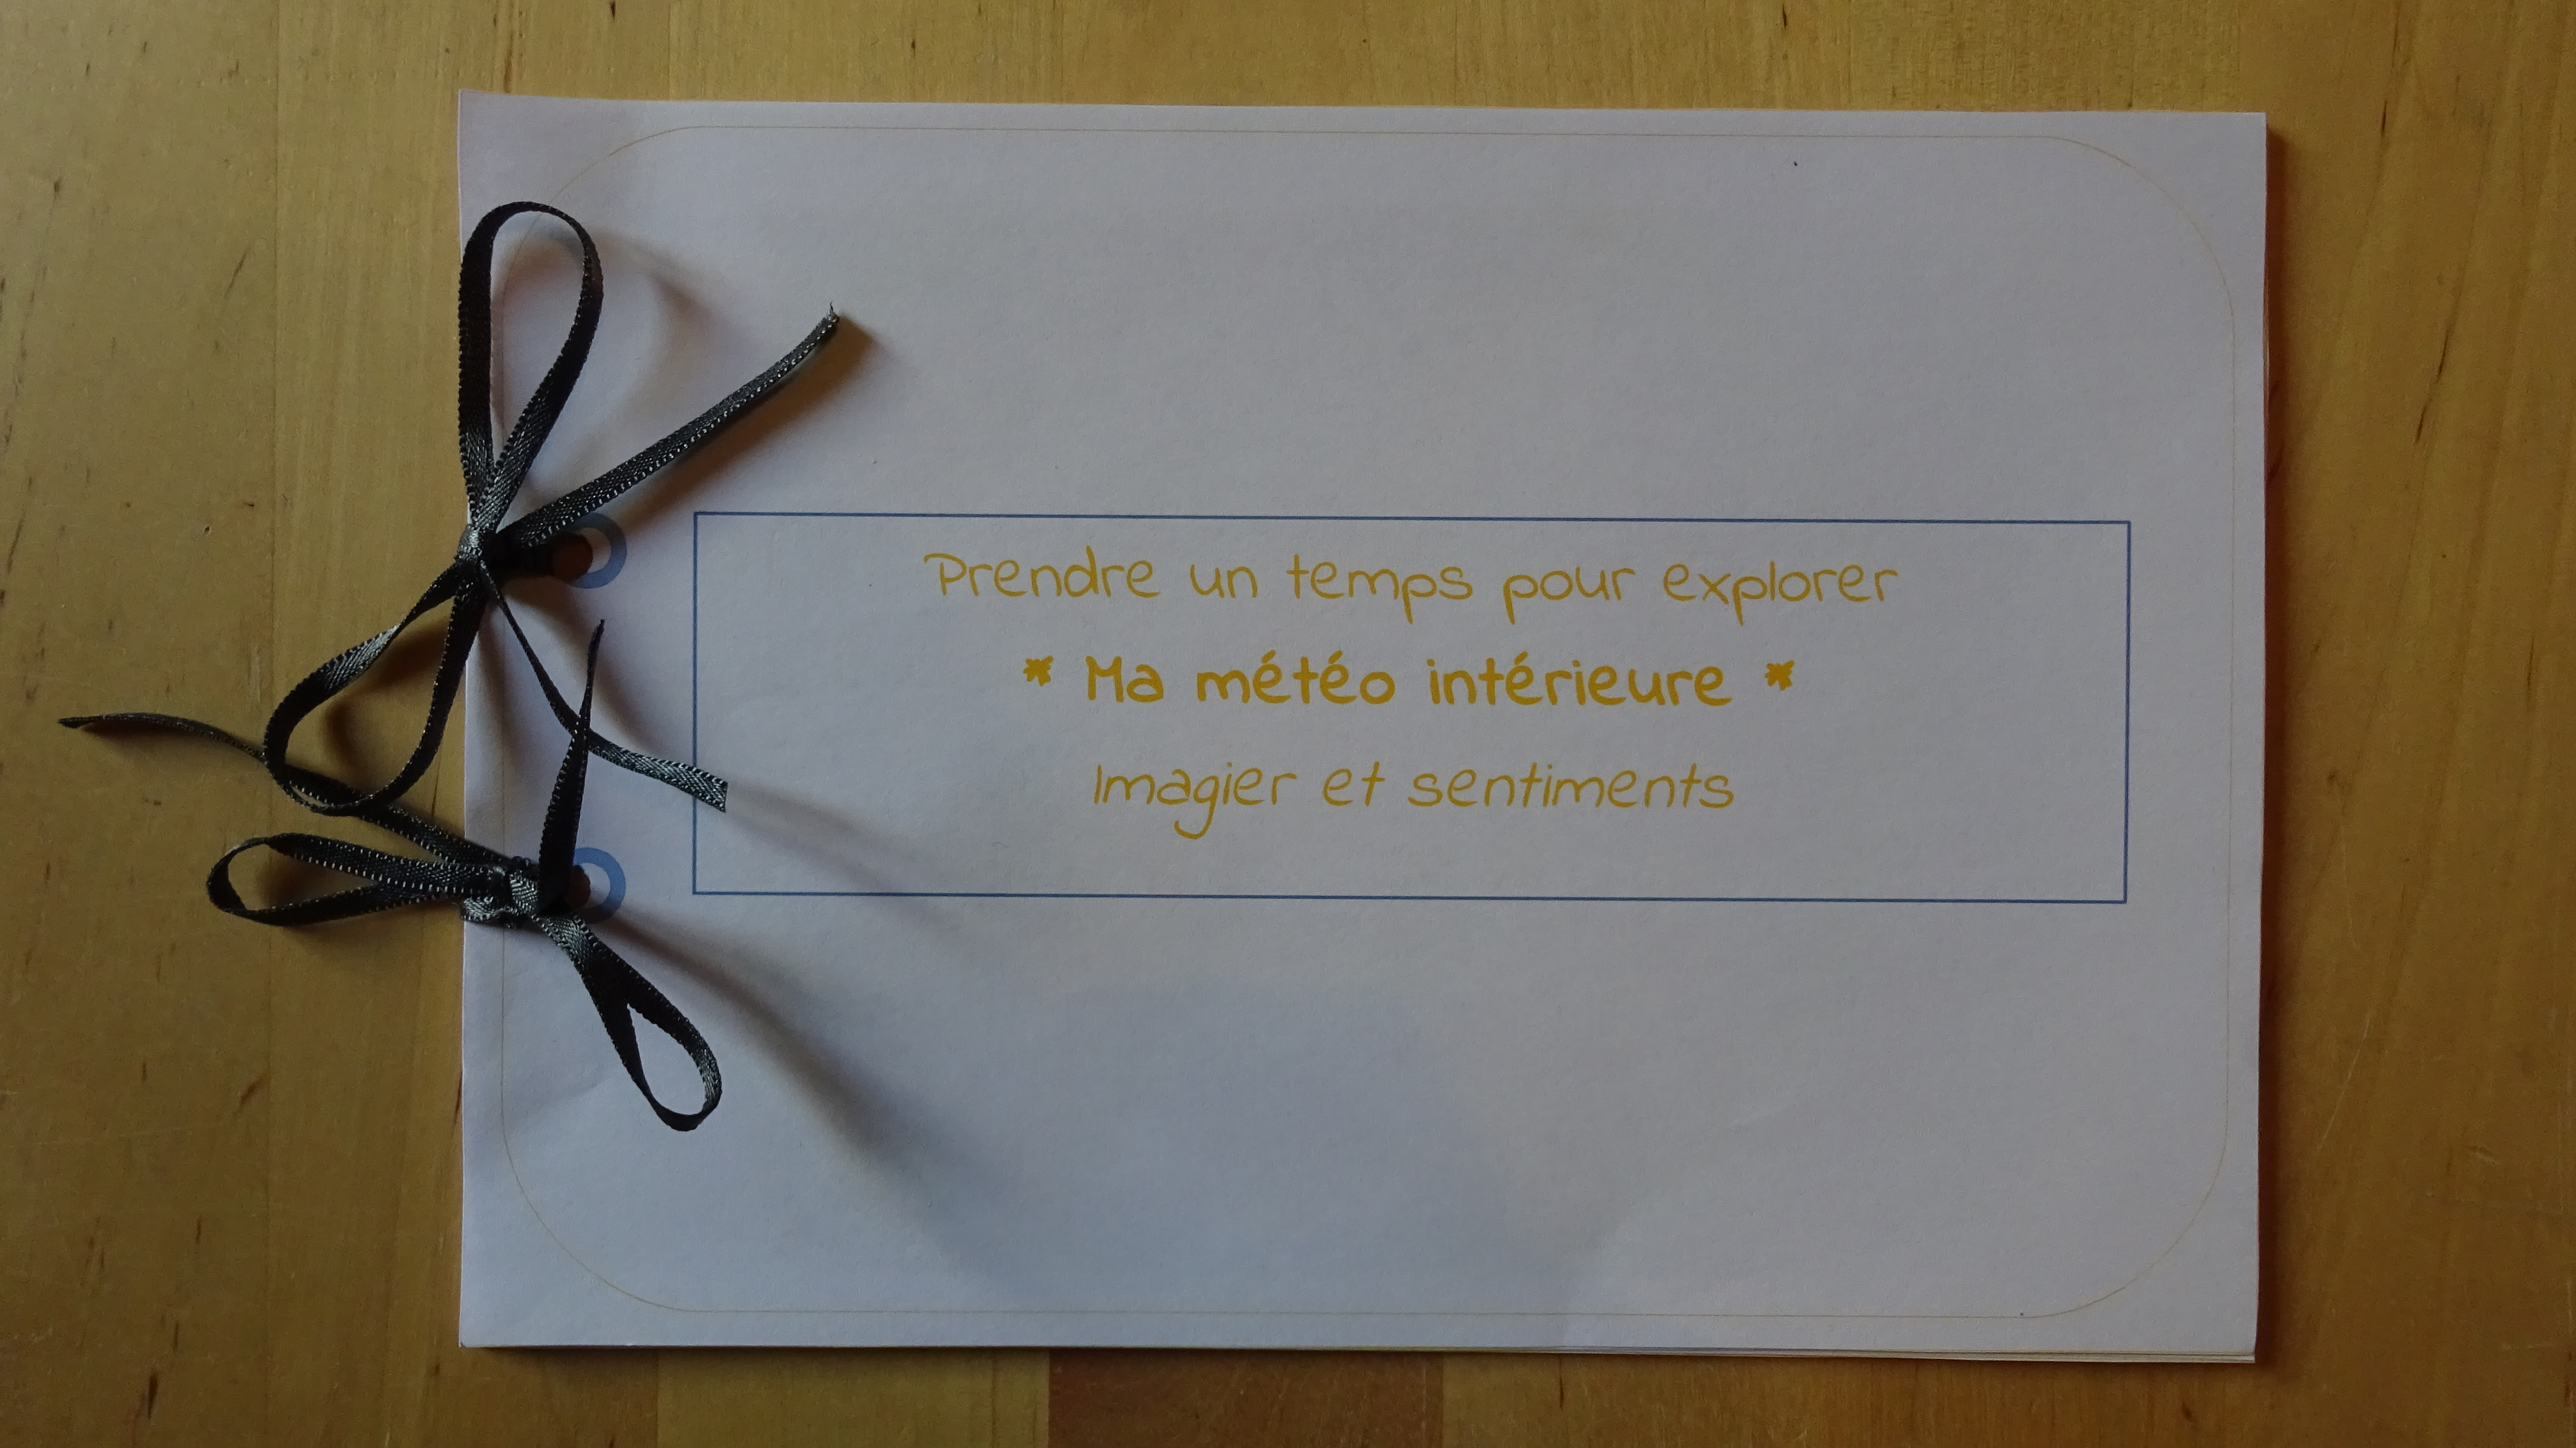 Prendre un temps pour explorer
* Ma météo intérieure *
Imagier et sentiments